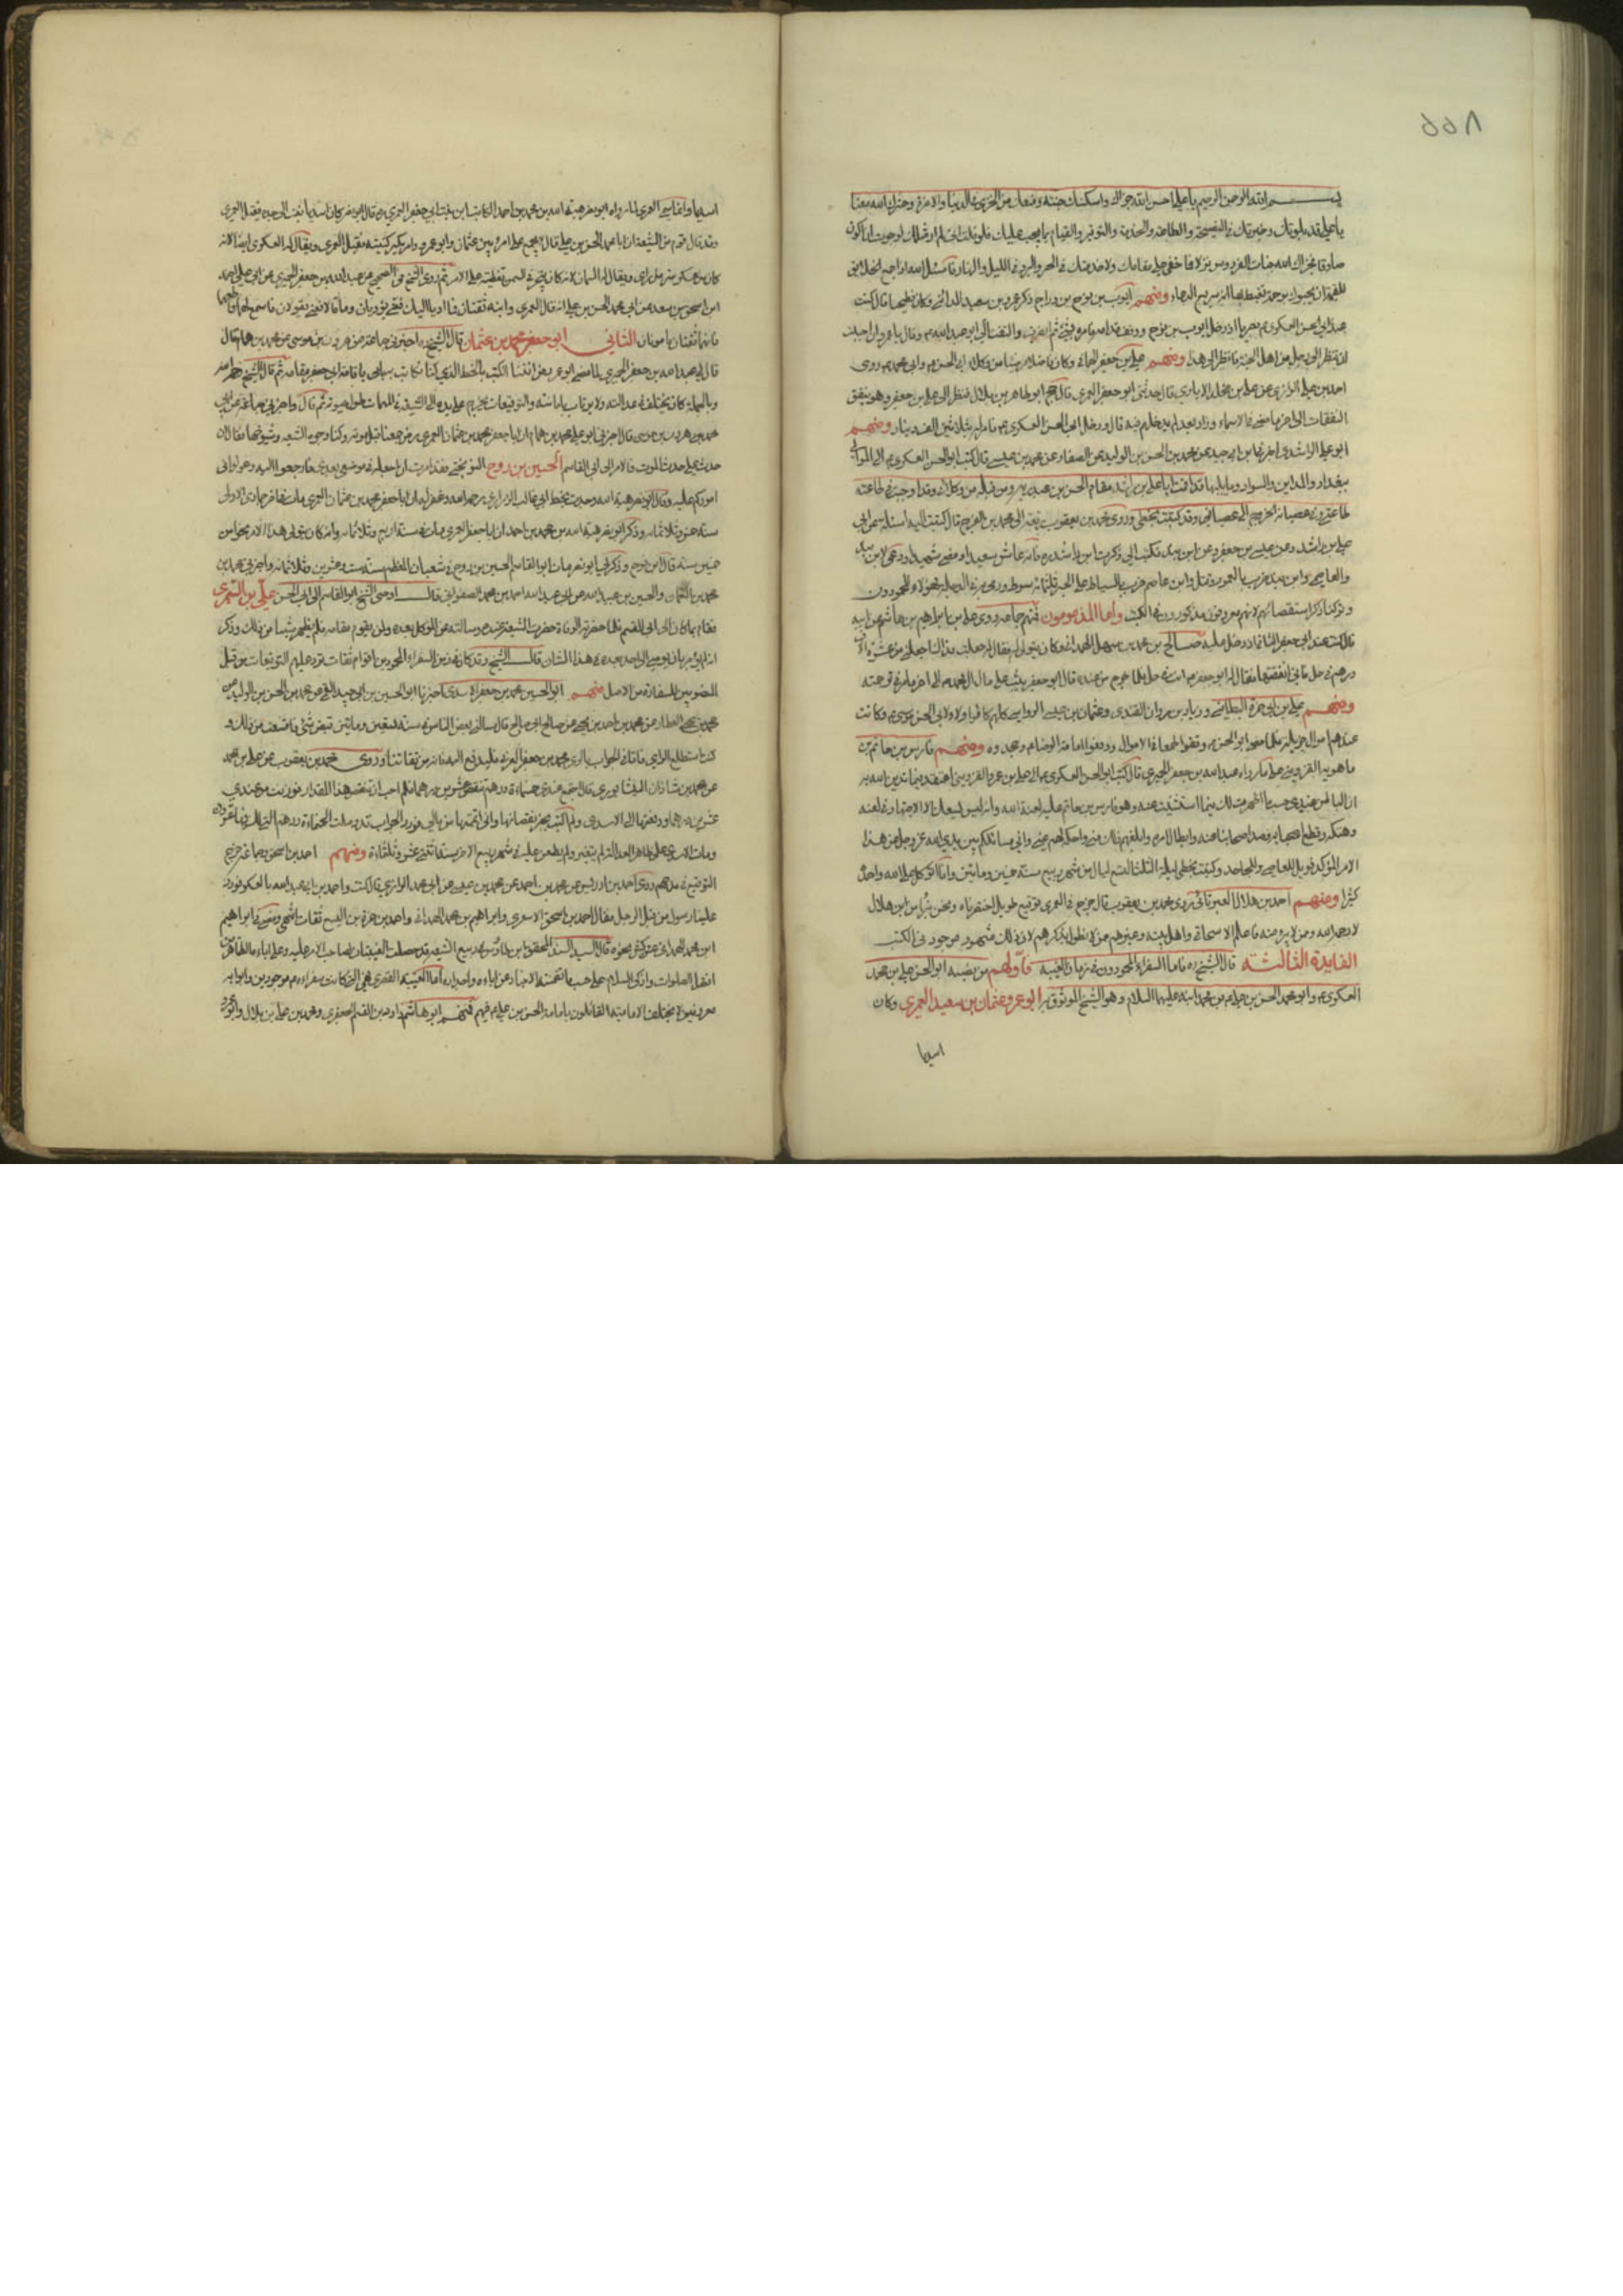 بســـم الله الرحمن الرحيم يا علي احسن الله جزاك واسكنك جنته ومنعك من الخزي في الدنيا والاخرة وحشرك الله معنا
يا علي قد بلوتك وخبرتك في النصيحة والطاعة والخدمة والتوقير والقيام بما يجب عليك فلو قلت اني لم ار مثلك لرجوت ان اكون
صادقا فجزاك الله جنات الفردوس نزلا فما خفي علي مقامك ولا خدمتك في الحر والبرد في الليل والنهار فاسئل الله اذا جمع الخلايق
للقيمة ان يحبوك برحمة تغتبط بها انه سميع الدعاء ومنهم ايوب بن نوح بن دراج ذكر عمرو بن سعيد المدائني وكان فطحيا قال كنت
عند ابي الحسن العسكري بصريا اذ دخل ايوب بن نوح ووقف قدامه فامره بشئ ثم انصرف والتفت الي ابو الحسن وقال يا عمرو ان احببت
ان تنظر الى رجل من اهل الجنة فانظر الى هذا ومنهم علي بن جعفر الهماني وكان فاضلا مرضيا من وكلاء ابي الحسن وابي محمد روى
احمد بن علي الرازي عن علي بن مخلد الايادي قال حدثني ابو جعفر العمري قال حج ابو طاهر بن بلال فنظر الى علي بن جعفر وهو ينفق
النفقات فامر له بثلاثين الف دينار ومنهم
ابو علي بن راشد اخبرني ابن ابي جيد عن محمد بن الحسن بن الوليد عن الصفار عن محمد بن عيسى قال كتب ابو الحسن العسكري الى الموالي
ببغداد والمداين والسواد وما يليها قد اقمت ابا علي بن راشد مقام الحسين بن عبد ربه ومن قبله من وكلائي وقد اوجبت في طاعته
طاعتي وفي عصيانه الخروج الى عصياني وقد كتبت بخطي وروى محمد بن يعقوب رفعه الى محمد بن الفرج قال كتبت اليه اسئله عن ابي
علي بن راشد وعن عيسى بن جعفر وعن ابن بند وكتب الي ذكرت ابن راشد ره فانه عاش سعيدا ومضى شهيدا ودعى لابن بند
والعاصمي وابن بند ضرب بالعمود وقتل وابن عاصم ضرب بالسياط على الجسر ثلثمائة سوط ورمي به في الدجلة فهؤلاء المحمودون
وتركنا ذكر استقصائهم لانهم معروفون مذكورون في الكتب واما المذمومون فمنهم جماعة فروى علي بن ابراهيم بن هاشم عن ابيه
قال كنت عند ابي جعفر الثاني اذ دخل عليه صالح بن محمد بن سهل الهمداني وكان يتولى له فقال له جعلت فداك اجعلني من عشرة الاف
درهم في حل فاني انفقتها فقال له ابو جعفر انت في حل فلما خرج من عنده قال ابو جعفر
ومنهم علي بن ابي حمزة البطائني وزياد بن مروان القندي وعثمان بن عيسى الرواسي كلهم كانوا وكلاء لابي الحسن موسى وكانت
عندهم اموال جزيلة فلما مضى ابو الحسن وقفوا طمعا في الاموال ودفعوا امامة الرضا وجحدوه ومنهم فارس بن حاتم بن
ماهويه القزويني على ما رواه عبد الله بن جعفر الحميري قال كتب ابو الحسن العسكري الى علي بن عمرو القزويني اعتقد فيما تدين الله به
ان الباطن عندي حسب ما اظهرت لك فيما استنبت عنه وهو فارس بن حاتم عليه لعنة الله وانه ليس يسعك الا الاجتهاد في لعنه
الامر المؤكد فويل للعاصي وللجاحد وكتبت بخطي ليلة الثلثا لتسع ليال من شهر ربيع سنة خمسين ومايتين وانا اتوكل على الله واحمده
كثيرا ومنهم احمد بن هلال العبرتائي روى محمد بن يعقوب قال خرج الى العمري توقيع طويل اختصرناه ونحن نبرأ من ابن هلال
لا رحمه الله ومن لا يبرء منه فاعلم الاسحاقي واهل بلده وغيرهم ممن لا نطول بذكرهم لان ذلك مشهور موجود في الكتب
الفايدة الثالثة قال الشيخ ره فاما السفراء المحمودون في زمان الغيبة فاولهم من نصبه ابو الحسن علي بن محمد
العسكري وابو محمد الحسن بن علي بن محمد ابنه عليهما السلام وهو الشيخ الموثوق به ابو عمرو عثمان بن سعيد العمري وكان
اسديا
اسديا وانما سمي العمري لما رواه ابو نصر هبة الله بن محمد بن احمد الكاتب ابن بنت ابي جعفر العمري ره قال ابو نصر كان اسديا فنسب الى جده فقيل العمري
وقد قال قوم من الشيعة ان ابا محمد الحسن بن علي قال لا يجمع على امرئ بين عثمان وابو عمرو وامر بكسر كنيته فقيل العمري ويقال له العسكري ايضا لانه
كان من عسكر سر من راى ويقال له السمان لانه كان يتجر في السمن تغطية على الامر ثم روى الشيخ في الصحيح عن عبد الله بن جعفر الحميري عن ابي علي احمد
ابن اسحق بن سعد عن ابي محمد الحسن بن علي انه قال العمري وابنه ثقتان فما اديا اليك فعني يؤديان وما قالا فعني يقولان فاسمع لهما واطعهما
فانهما الثقتان المامونان الثاني ابو جعفر محمد بن عثمان قال الشيخ ره اخبرني جماعة عن هرون بن موسى عن محمد بن همام قال
قال لي عبد الله بن جعفر الحميري لما مضى ابو عمرو رض اتتنا الكتب بالخط الذي كنا نكاتب به باقامة ابي جعفر مقامه ثم قال الشيخ
حدث على حدث الموت فالامر الى ابي القاسم الحسين بن روح النوبختي فقد امرت ان اجعله في موضعي بعدي فارجعوا اليه وعولوا في
اموركم عليه وقال ابو نصر هبة الله وجدت بخط ابي غالب الزراري رحمه الله وغفر له ان ابا جعفر محمد بن عثمان العمري مات في اخر جمادى الاولى
سنة خمس وثلاثمائة وذكر ابو نصر هبة الله بن محمد بن احمد ان ابا جعفر العمري مات في سنة اربع وثلاثمائة وانه كان يتولى هذا الامر نحوا من
خمسين سنة قال ابن نوح وذكر لي ابو نصر مات ابو القاسم الحسين بن روح في شعبان المعظم سنة ست وعشرين وثلاثمائة واخبرني محمد بن
محمد بن النعمان والحسين بن عبيد الله عن ابي عبد الله احمد بن محمد الصفواني قال اوصى الشيخ ابو القاسم الى ابي الحسن علي بن السمري
فقام بما كان الى ابي القسم فلما حضرته الوفاة حضرت الشيعة عنده وسالته عن الموكل بعده ولمن يقوم مقامه فلم يظهر شيئا من ذلك وذكر
انه لم يؤمر بان يوصي الى احد بعده في هذا الشان قال الشيخ وقد كان في زمن السفراء المحمودين اقوام ثقات ترد عليهم التوقيعات من قبل
المنصوبين للسفارة من الاصل منهم ابو الحسين محمد بن جعفر الاسدي اخبرنا ابو الحسين بن ابي جيد القمي عن محمد بن الحسن بن الوليد عن
محمد بن يحيى العطار عن محمد بن احمد بن يحيى عن صالح بن ابي صالح قال سالني بعض الناس في سنة تسعين ومائتين قبض شئ فامتنعت من ذلك و
كتبت استطلع الراي فاتاني الجواب بالري محمد بن جعفر العربي فليدفع اليه فانه من ثقاتنا وروى محمد بن يعقوب عن علي بن محمد
عن محمد بن شاذان النيشابوري قال اجتمع عندي خمسمائة درهم تنقص عشرين درهما فلم احب ان تنقص هذا المقدار فوزنت من عندي
عشرين درهما ودفعتها الى الاسدي ولم اكتب بخبر نقصانها واني اتممتها من مالي فورد الجواب قد وصلت الخمسمائة درهم التي لك فيها عشرون
ومات الاسدي على ظاهر العدالة لم يتغير ولم يطعن عليه في شهر ربيع الاخر سنة اثنتي عشر وثلثمائة ومنهم احمد بن اسحق وجماعة خرج
التوقيع في مدحهم روى احمد بن ادريس عن محمد بن احمد عن محمد بن عيسى عن ابي محمد الرازي قال كنت واحمد بن ابي عبد الله بالعسكر فورد
علينا رسول من قبل الرجل فقال احمد بن اسحق الاشعري وابراهيم بن محمد الهمداني واحمد بن حمزة بن اليسع ثقات
معروفين لا يختلف الامامية القائلون بامامة الحسن بن علي فيهم فمنهم ابو هاشم داود بن القسم الجعفري ومحمد بن علي بن بلال